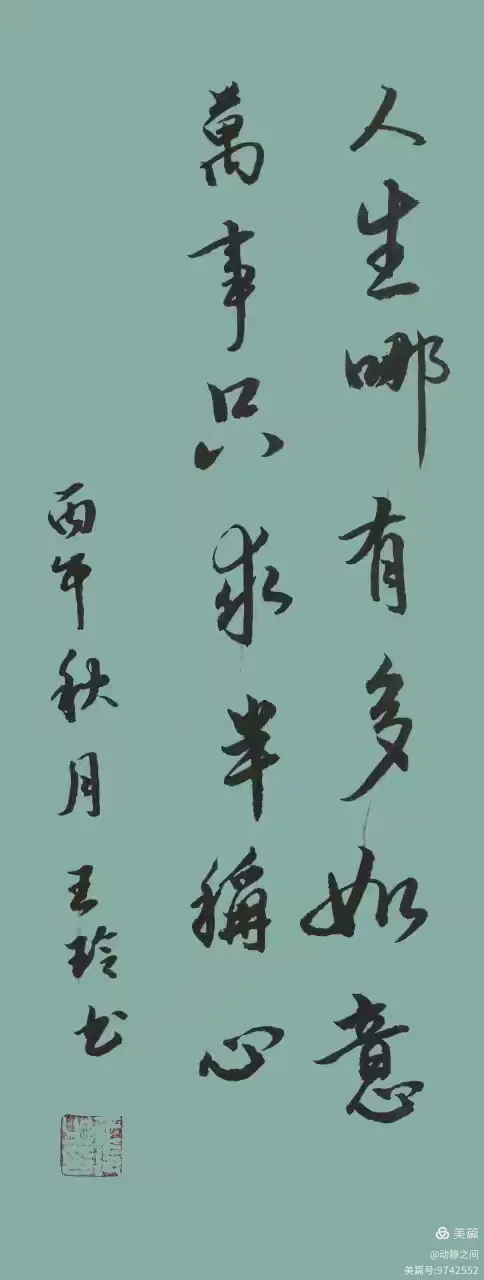 人生哪有多如意
萬事只求半稱心
丙午秋月王玲书
美篇
@动静之间
美篇号:9742552